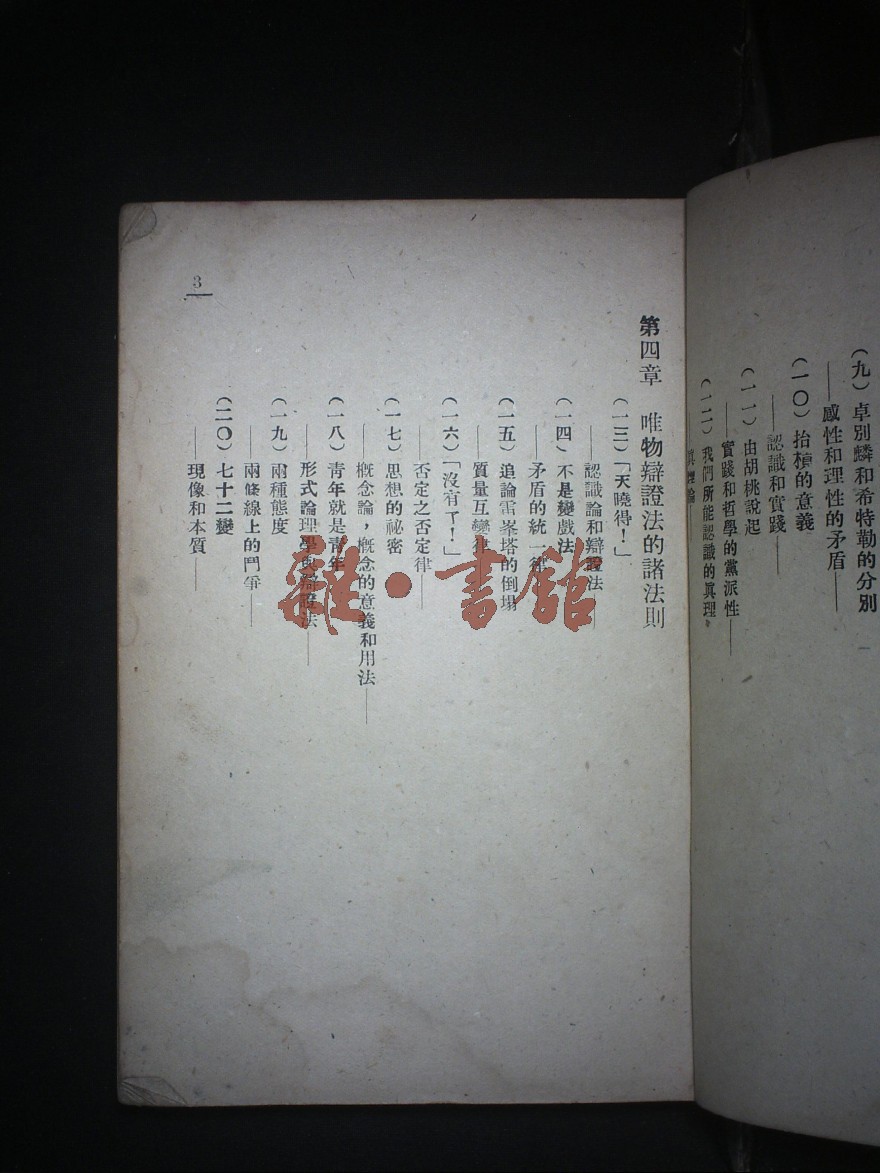 （九）卓別麟和希特勒的分別
——感性和理性的矛盾——
（一〇）抬槓的意義
——認識和實踐——
（一一）由胡桃說起
——實踐和哲學的黨派性——
（一二）我們所能認識的眞理
——眞理論——
第四章　唯物辯證法的諸法則
（一三）「天曉得！」
——認識論和辯證法——
（一四）不是變戲法
——矛盾的統一律——
（一五）追論雷峯塔的倒塌
——質量互變律——
（一六）「沒有了！」
——否定之否定律——
（一七）思想的祕密
——槪念論，槪念的意義和用法——
（一八）靑年就是靑年
——形式論理學與辯證法——
（一九）兩種態度
——兩條線上的鬥爭——
（二〇）七十二變
——現像和本質——
3
雜·書館